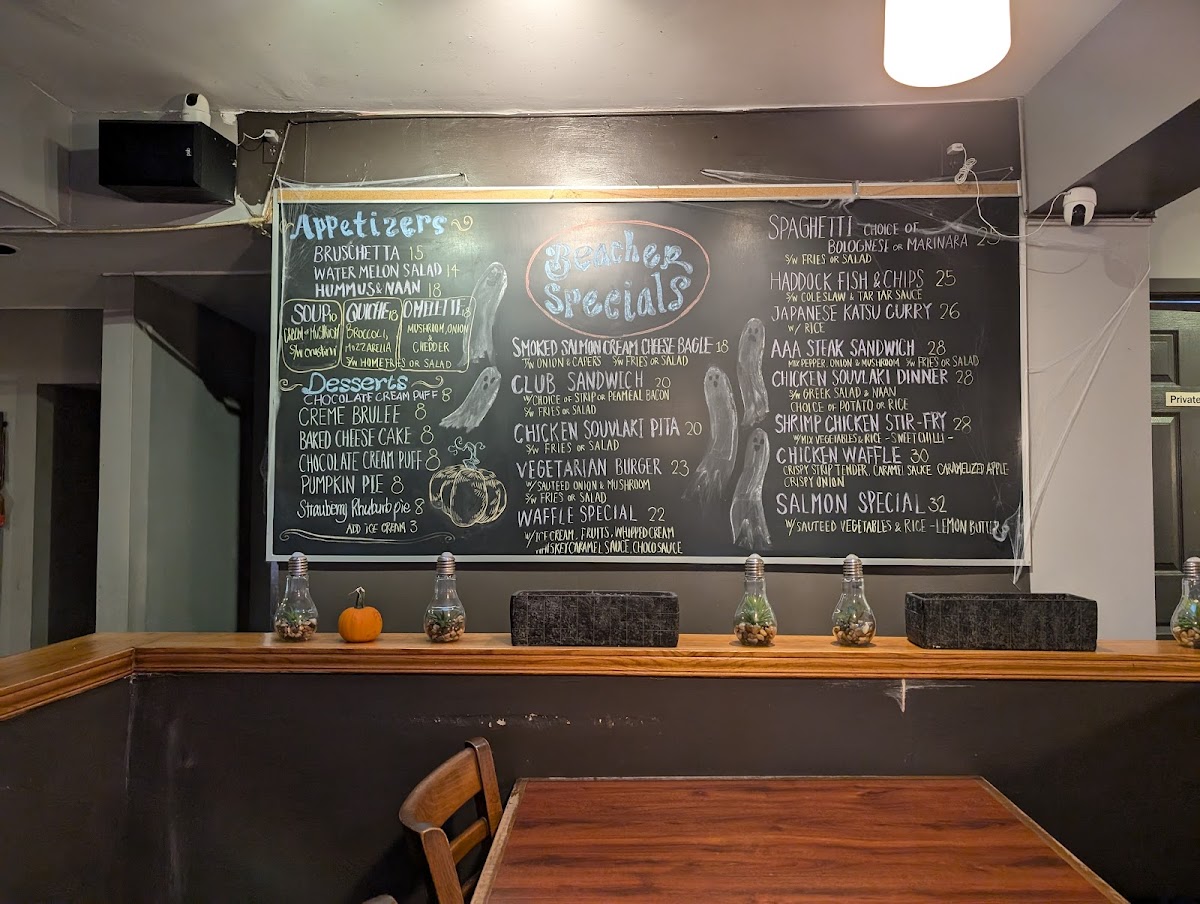 Appetizers
BRUSCHETTA 15
WATER MELON SALAD 14
HUMMUS & NAAN 18
SOUP 10
CREAM OF MUSHROOM
S/W crostini
QUICHE 18
BROCCOLI,
MOZZARELLA
OMELETTE 18
MUSHROOM, ONION
&
CHEDDER
S/W HOME FRIES OR SALAD
Desserts
CHOCOLATE CREAM PUFF 8
CREME BRULEE 8
BAKED CHEESE CAKE 8
CHOCOLATE CREAM PUFF 8
PUMPKIN PIE 8
Strauberry Rhuburb pie 8
ADD ICE CREAM 3
Beacher
Specials
SMOKED SALMON CREAM CHEESE BAGLE 18
ONION & CAPERS S/W FRIES OR SALAD
CLUB SANDWICH 20
W/CHOICE OF STRIP OR PEAMEAL BACON
S/W FRIES OR SALAD
CHICKEN SOUVLAKI PITA 20
S/W FRIES OR SALAD
VEGETARIAN BURGER 23
W/SAUTEED ONION & MUSHROOM
S/W FRIES OR SALAD
WAFFLE SPECIAL 22
W/ICE CREAM, FRUITS, WHIPPED CREAM
WHISKEY CARAMEL SAUCE, CHOCO SAUCE
SPAGHETTI CHOICE OF
BOLOGNESE OR MARINARA 25
S/W FRIES OR SALAD
HADDOCK FISH & CHIPS 25
S/W COLESLAW & TAR TAR SAUCE
JAPANESE KATSU CURRY 26
W/ RICE
AAA STEAK SANDWICH 28
MIX PEPPER, ONION & MUSHROOM S/W FRIES OR SALAD
CHICKEN SOUVLAKI DINNER 28
S/W GREEK SALAD & NAAN
CHOICE OF POTATO OR RICE
SHRIMP CHICKEN STIR-FRY 28
W/MIX VEGETABLES & RICE - SWEET CHILLI -
CHICKEN WAFFLE 30
CRISPY STRIP TENDER, CARAMEL SAUCE, CARAMELIZED APPLE
CRISPY ONION
SALMON SPECIAL 32
W/SAUTEED VEGETABLES & RICE - LEMON BUTTER
Private